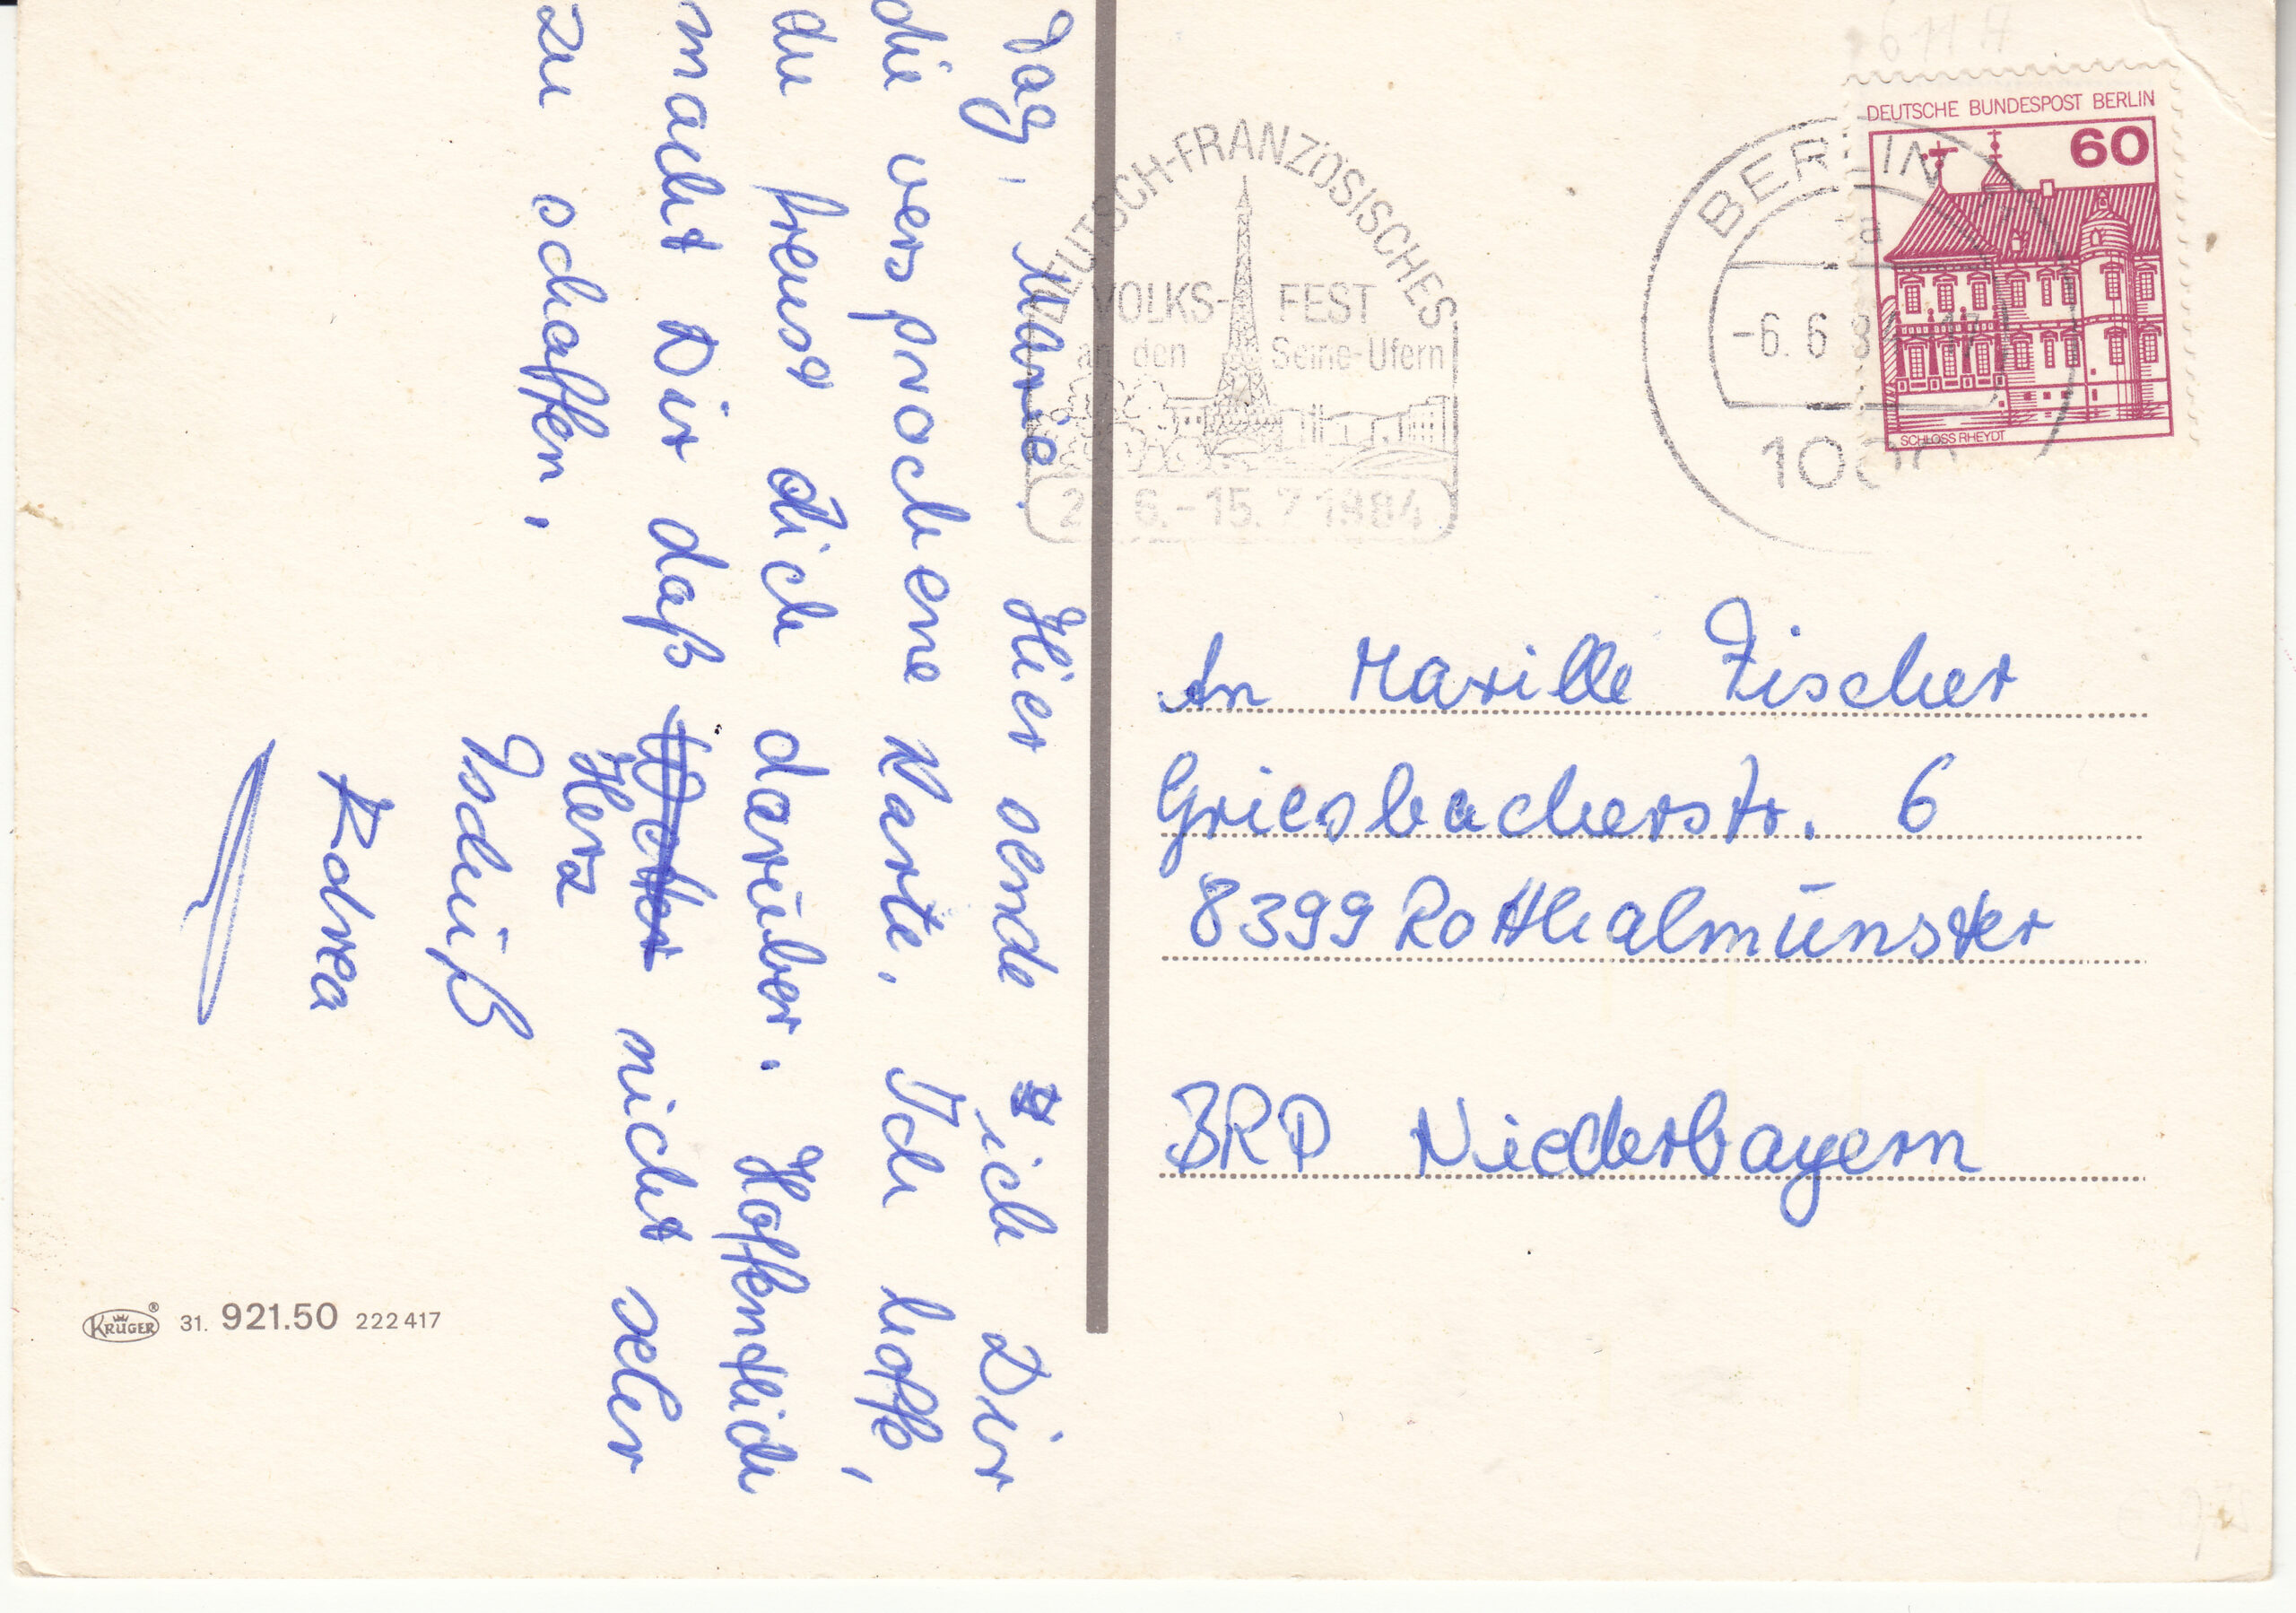 Tag, Marie. Hier sende ich Dir
die versprochene Karte. Ich hoffe,
du freust dich darüber. Hoffendlich
macht Dir daß Herz nicht sehr
zu schaffen.
Tschüß
Andrea
KRÜGER® 31. 921.50 222 417
DEUTSCH-FRANZÖSISCHES
VOLKS- FEST
an den Seine-Ufern
6.-15.7.1984
BERLIN
a
-6.6.84-17
1000
DEUTSCHE BUNDESPOST BERLIN
60
SCHLOSS RHEYDT
An Marille Fischer
Griesbacherstr. 6
8399 Rotthalmünster
BRD Niederbayern